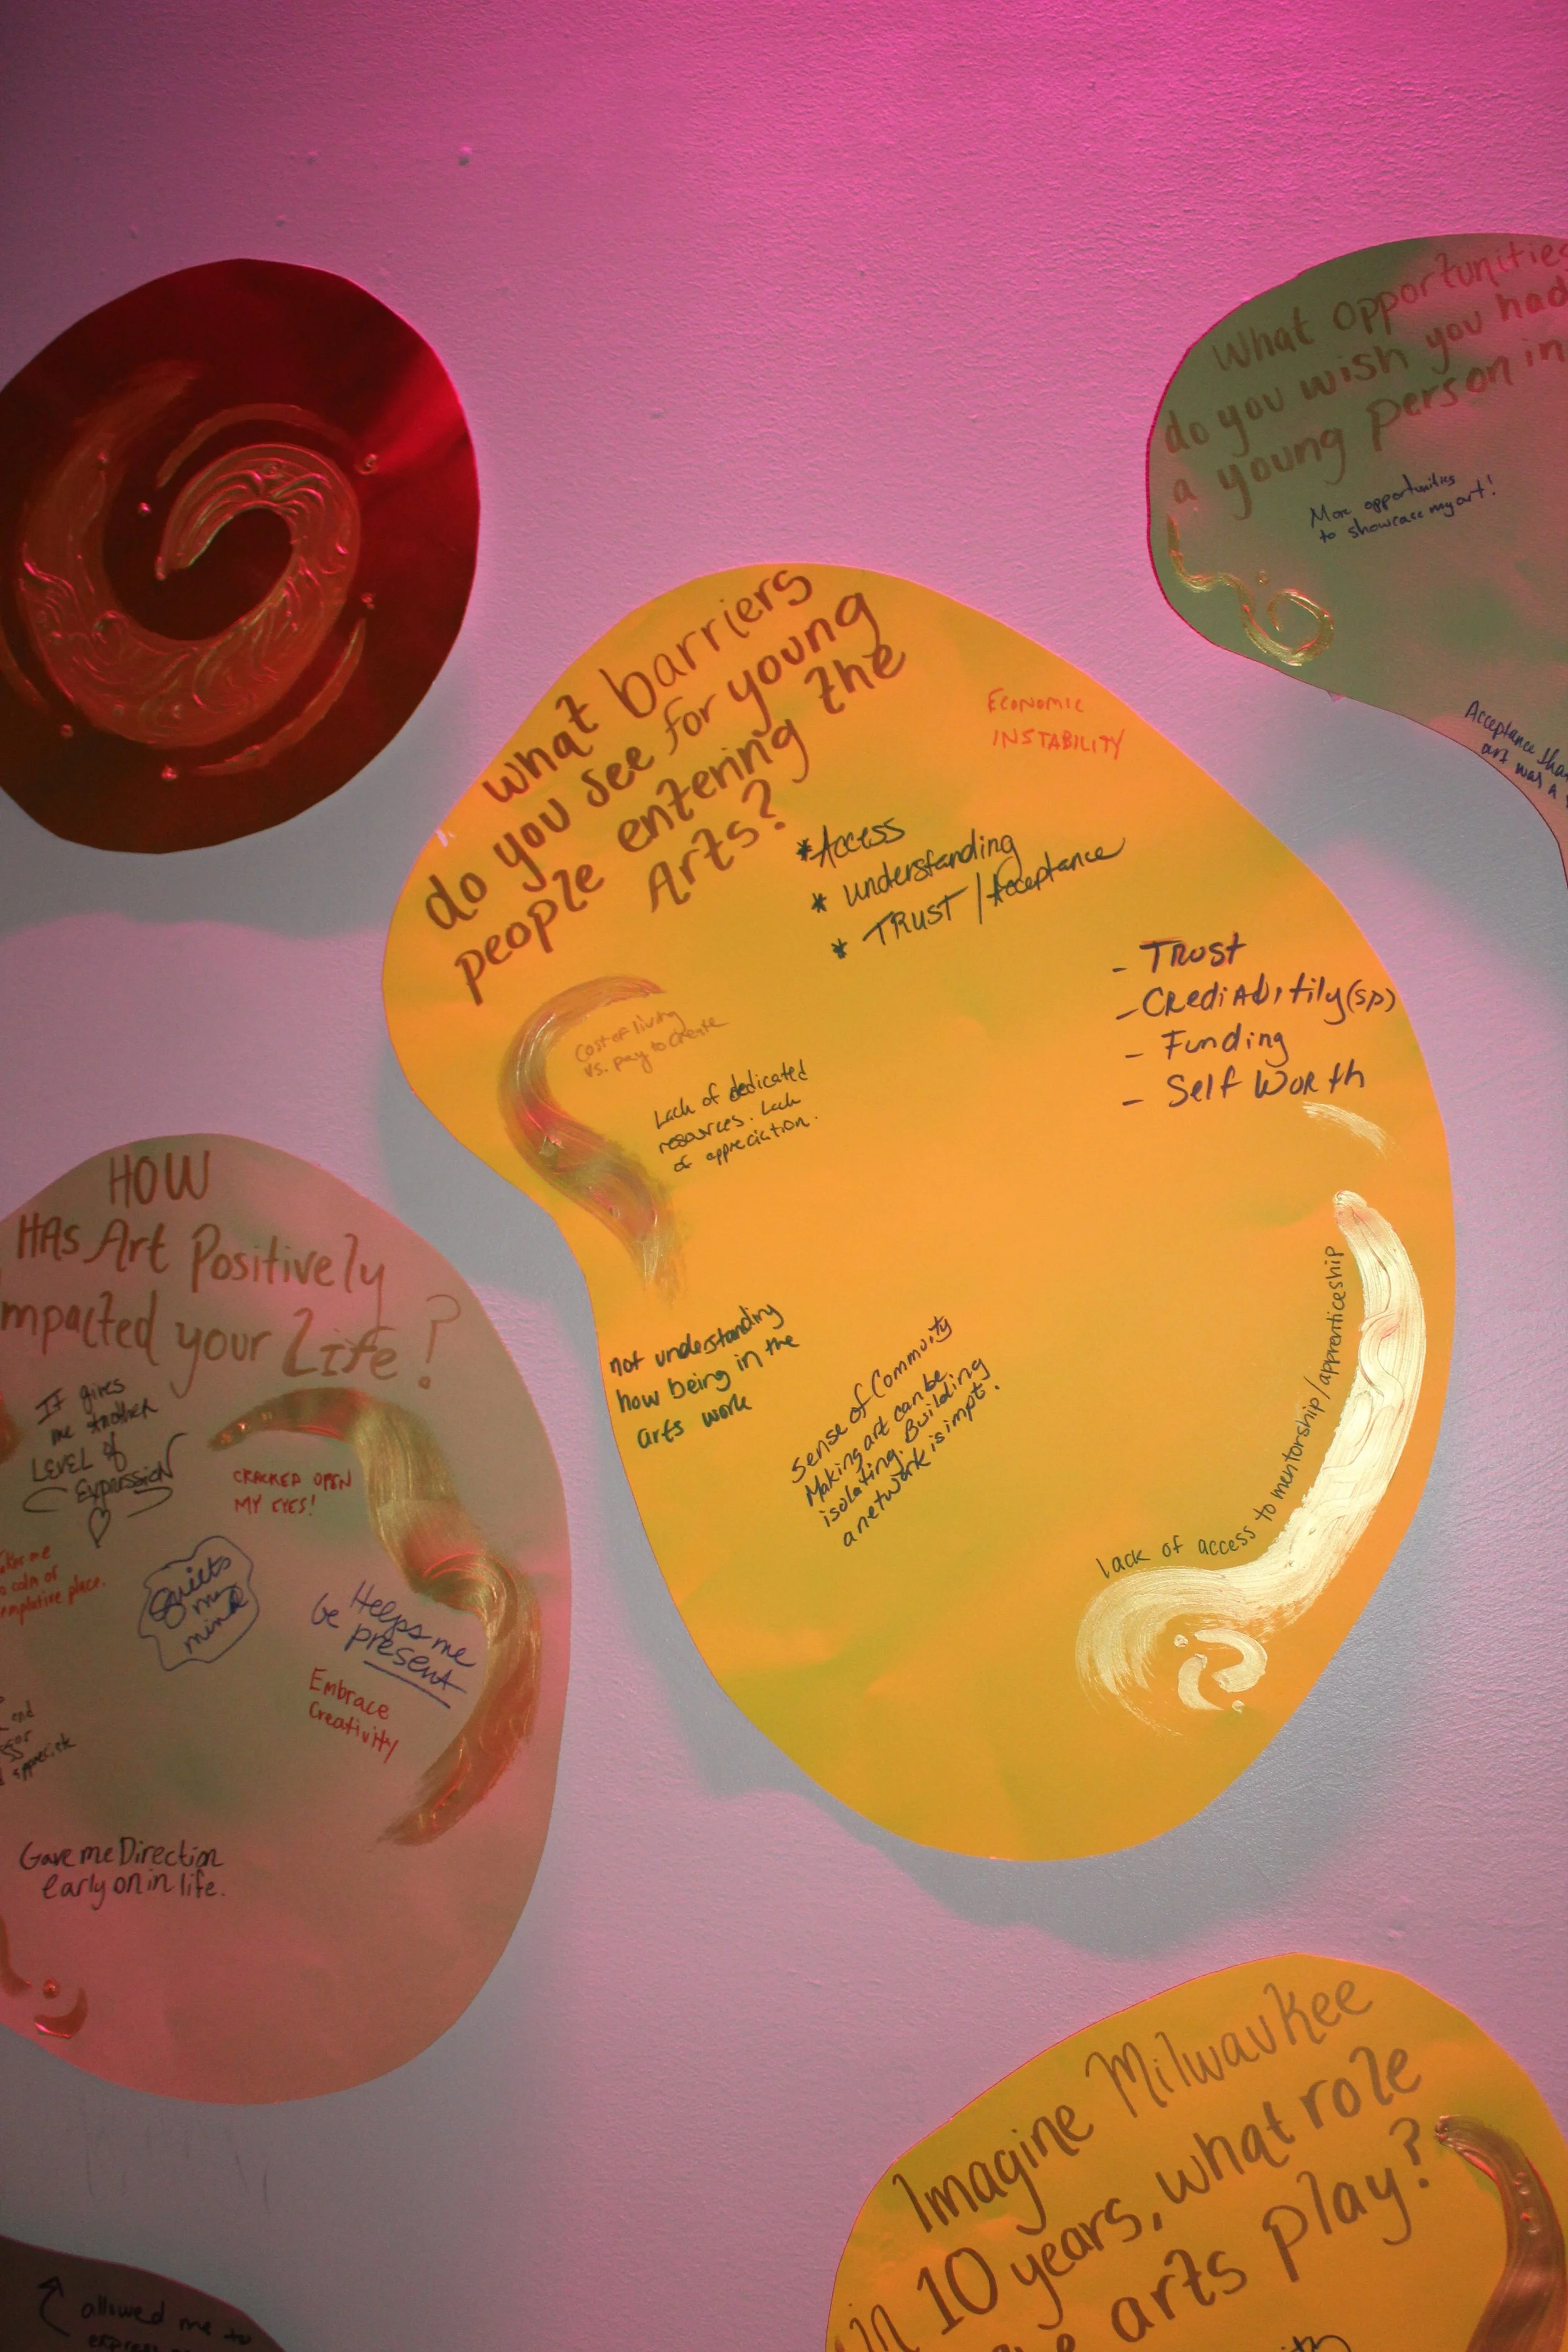 What opportunities
do you wish you had
a young person in
More opportunities
to showcase my art!
Acceptance
art was a
What barriers
do you see for young
people entering the
Arts?
ECONOMIC
INSTABILITY
*Access
* understanding
* TRUST / Acceptance
- TRUST
- CrediAbitily (sp)
- Funding
- Self Worth
Cost of living
vs. pay to create
Lack of dedicated
resources. Lack
of appreciation.
not understanding
how being in the
arts work
Sense of Commuity
Making art can be
isolating. Building
a network is impt.
lack of access to mentorship/apprenticeship
HOW
HAS Art Positively
mpacted your Life?
It gives
me another
LEVEL of
Expression
CRACKED OPEN
MY EYES!
me
calm or
place.
Quiets
my
mind
Helps me
be present
Embrace
Creativity
and
Gave me Direction
early on in life.
Imagine Milwaukee
in 10 years, what role
arts play?
allowed me to